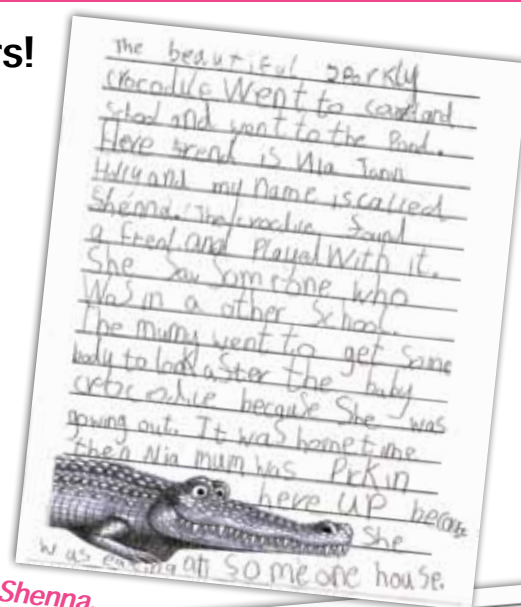 rs!
The beautiful sparkly
crocodile Went to
school and want to the Pond.
Here frend is Nia
Holly and my name is called
Shenna. The crocdie found
a frend and Played With it.
She Saw Someone who
Was in a other School.
The mumy went to get Some
body to look after the baby
crocodile because She was
gowing out. It was home time
then Nia mum was PrKin
here UP because
She
was eating at someone house.
Shenna